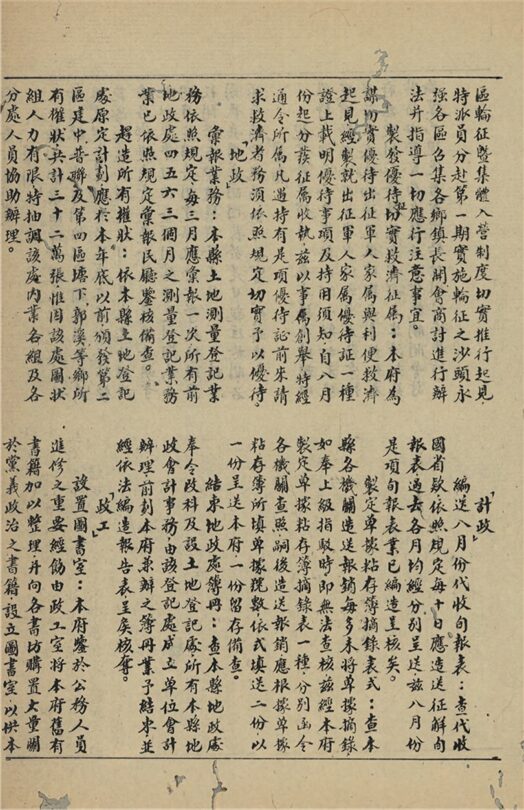 區輪征暨集體入營制度切實推行起見
特派員分赴第一期實施輪征之沙頭永
強各區召集各鄉鎮長開會商討進行辦
法并指導一切應行注意事宜。
製發優待切實救濟征屬:本府為
謀切實優待出征軍人家屬與利便救濟
起見經製就出征軍人家屬優待証一種
證上載明優待事項及持用須知自八月
份起分發征屬收執茲以事屬創舉特經
通令所屬凡遇持有是項優待証前來請
求救濟者務須依照規定切實予以優待。
「地政」
彙報業務:本縣土地測量登記業
務依照規定每三月應彙報一次所有前
地政處四五六三個月之測量登記業務
業已依照規定彙報民廳鑒核備查。
趕造所有權狀:依本縣土地登記
處原定計劃應於本年底以前頒發第二
區建中普聯及第四區塘下郭溪等鄉所
有權狀共計三十二萬張惟因該處圖狀
組人力有限特抽調該處內業各組及各
分處人員協助辦理。
「計政」
編送八月份代收旬報表:查代收
國省款依照規定每十日應造送征解旬
報表過去各月均經分別呈送茲八月份
是項旬報表業已編造呈核矣。
製定單據粘存簿摘錄表式:查本
縣各機關造送報銷每多未將單據摘錄
如奉上級指駁時即無法查核茲經本府
製定單據粘存簿摘錄表一種分別函令
各機關查照嗣後造送報銷應根據單據
粘存簿所填單據號數依式填送二份以
一份呈送本府一份留存備查。
結束地政處簿冊:查本縣地政處
奉令改科及設土地登記處所有本縣地
政會計事務由該登記處成立單位會計
辦理前剳本府兼辦之簿冊業予結束並
經依法編造報告表呈矣核奪。
「政工」
設置圖書室:本府鑒於公務人員
進修之重要經飭由政工室將本府舊有
書籍加以整理并向各書坊購置大量關
於黨義政治之書籍設立圖書室以供本